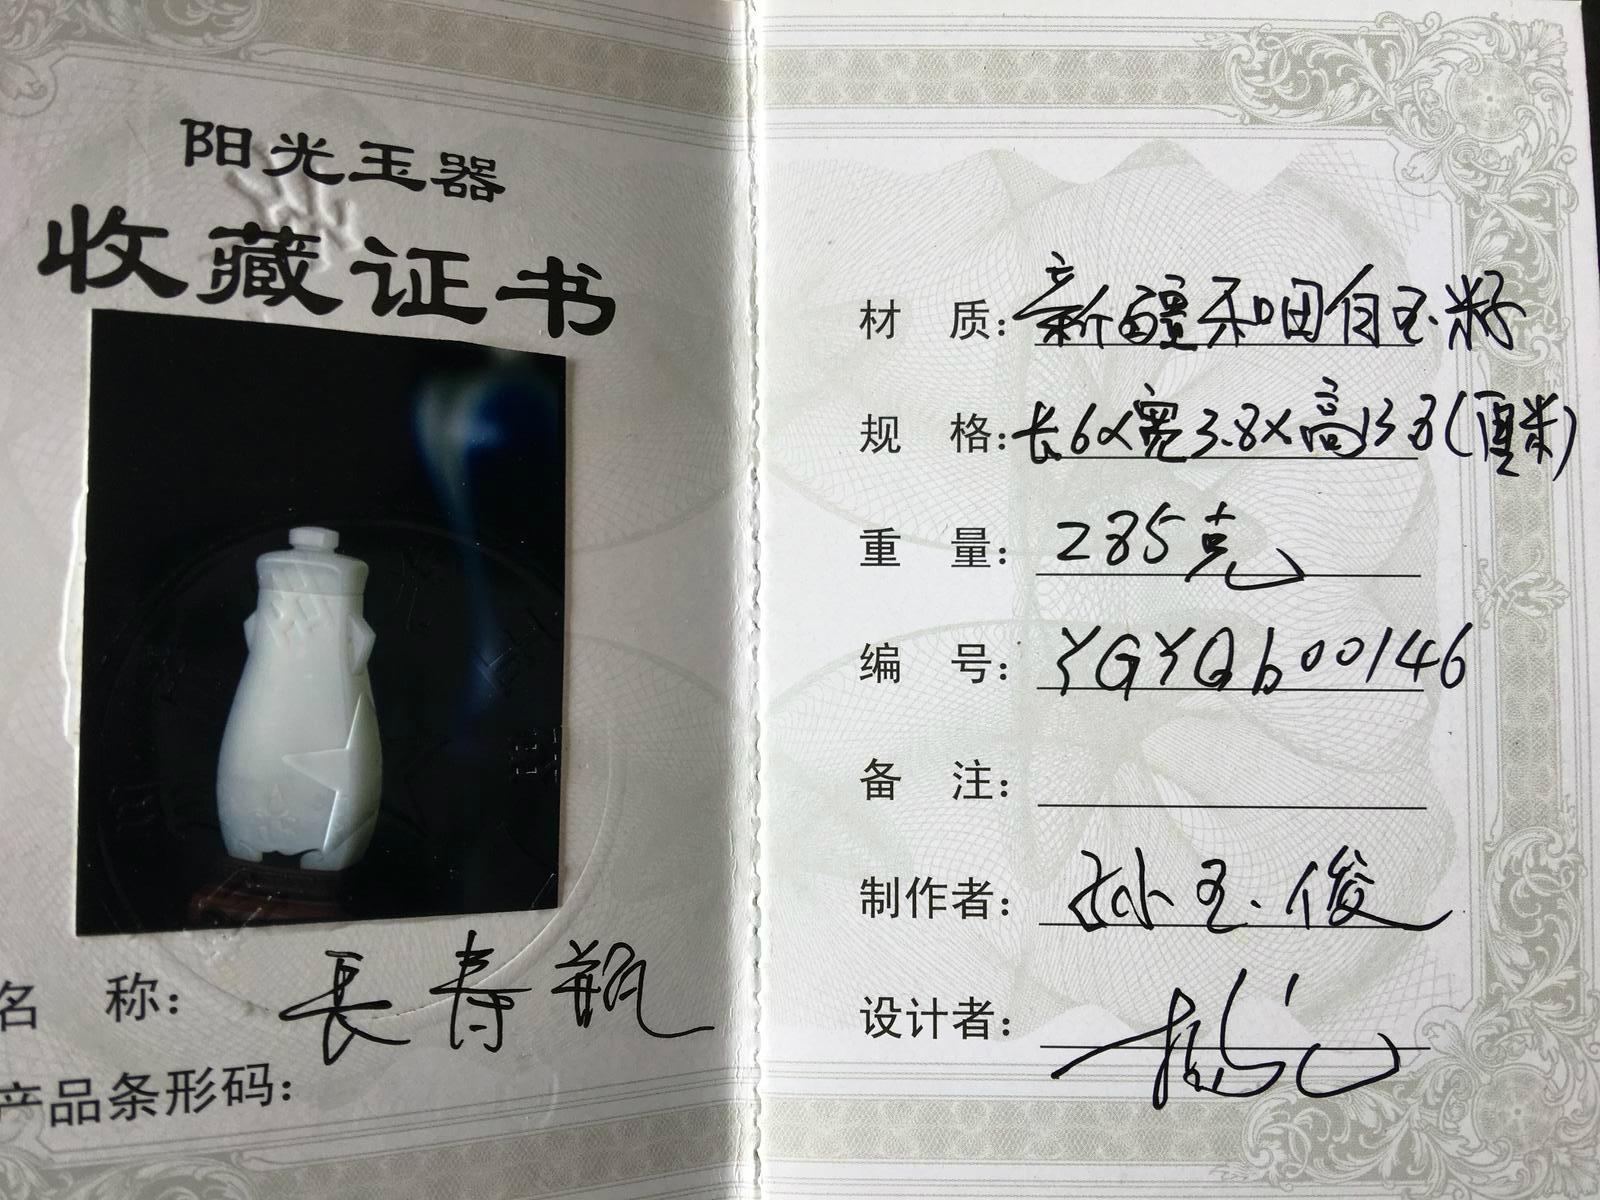 阳光玉器
收藏证书
名 称： 長寿瓶
产品条形码：
材 质：新疆和田白玉籽
规 格：长6×宽3.8×高13.8(厘米)
重 量：285克
编 号：YGYQb00146
备 注：
制作者：孙玉俊
设计者：